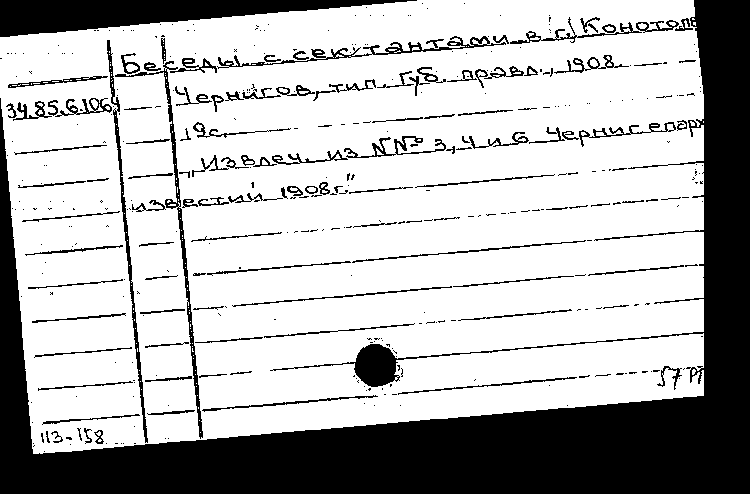 Беседы с сектантами в г. Конотопе
34.85.6.1064
Чернигов, тип. Губ. правл., 1908.
19с.
„Извлеч. из №№ 3, 4 и 6 Черниг епарх
известий 1908г."
57 РТ
113-158